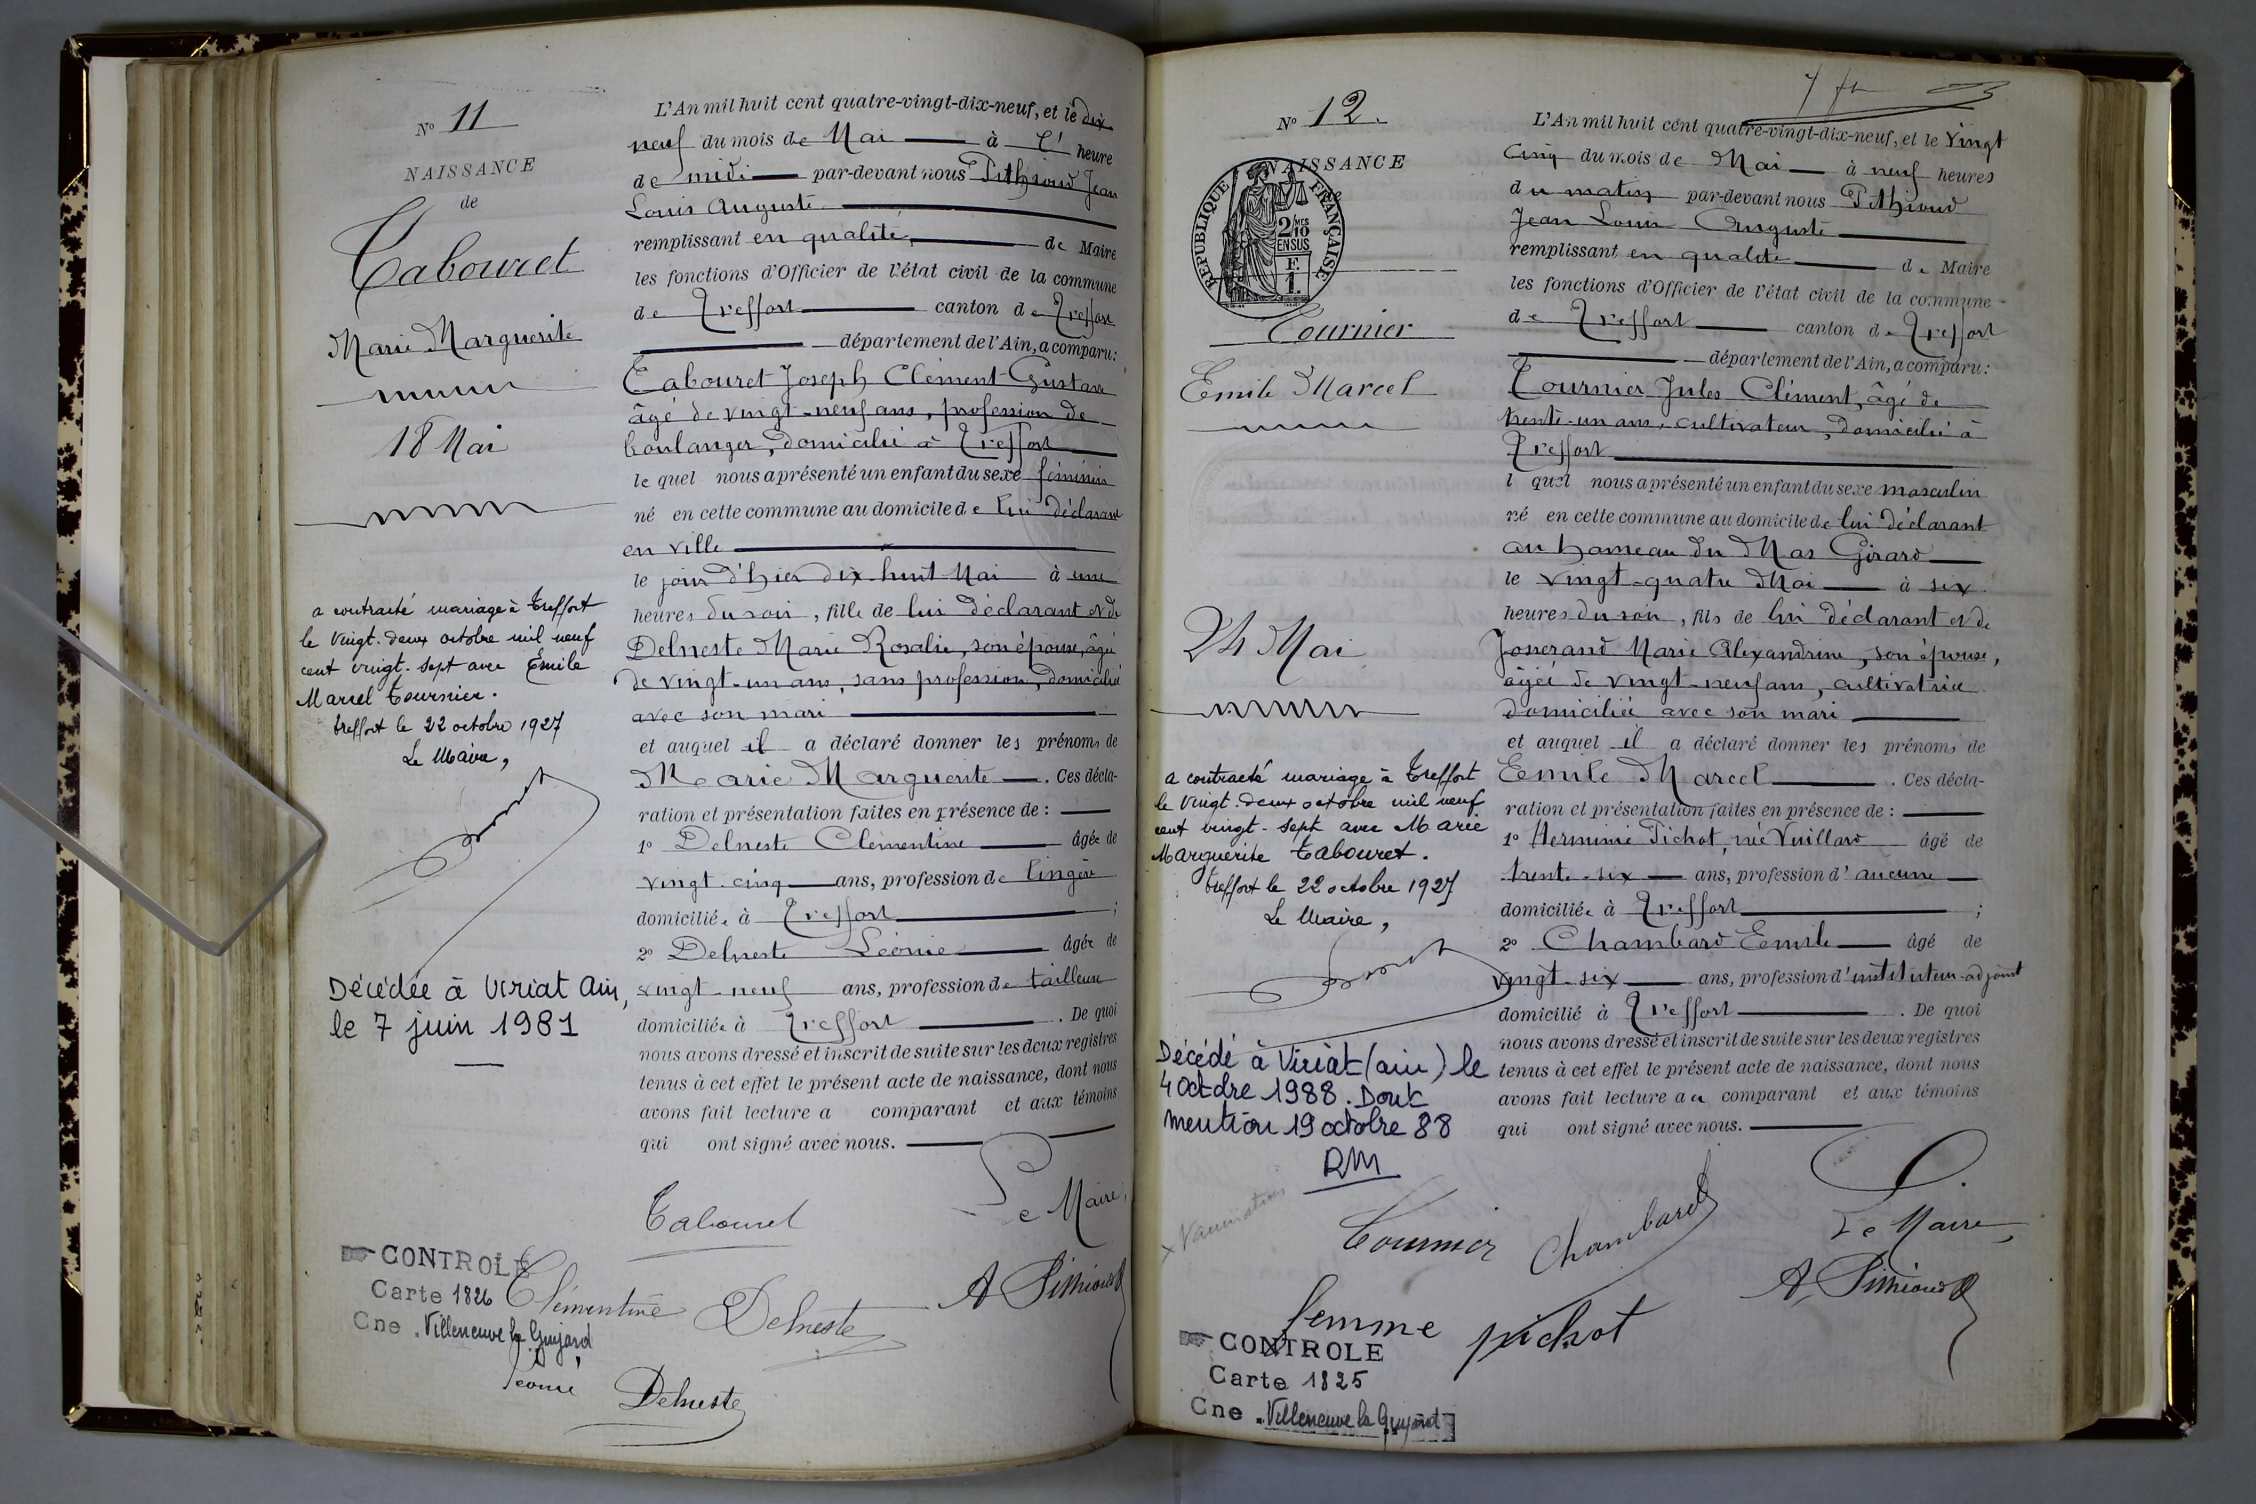 Nº 11
NAISSANCE
de
Tabouret
Marie Marguerite
18 Mai
a contracté mariage à Treffort
le vingt-deux octobre mil neuf
cent vingt-sept avec Emile
Marcel Tournier.
Treffort le 22 octobre 1927
Le Maire,
Décédée à Viriat Ain,
le 7 juin 1981
L'An mil huit cent quatre-vingt-dix-neuf, et le dix
neuf du mois de Mai à l' heure
de midi par-devant nous Pithioud Jean
Louis Auguste
remplissant en qualité, de Maire
les fonctions d'Officier de l'état civil de la commune
de Treffort canton de Treffort
département de l'Ain, a comparu:
Tabouret Joseph Clément Gustave
âgé de vingt-neuf ans, profession de
boulanger, domicilié à Treffort
le quel nous a présenté un enfant du sexe féminin
né en cette commune au domicile de lui déclarant
en ville
le jour d'hier dix-huit Mai à une
heures du soir, fille de lui déclarant et de
Delneste Marie Rosalie, son épouse, âgée
de vingt-un ans, sans profession, domiciliée
avec son mari
et auquel il a déclaré donner les prénoms de
Marie Marguerite. Ces décla-
ration et présentation faites en présence de :
1º Delneste Clémentine âgée de
vingt-cinq ans, profession de lingère
domiciliée à Treffort ;
2º Delneste Léonie âgée de
vingt-neuf ans, profession de tailleuse
domiciliée à Treffort. De quoi
nous avons dressé et inscrit de suite sur les deux registres
tenus à cet effet le présent acte de naissance, dont nous
avons fait lecture a comparant et aux témoins
qui ont signé avec nous.
Tabouret
Le Maire,
Clémentine Delneste
A Pithioud
Léonie Delneste
CONTROLE
Carte 1826
Cne. Villeneuve la Guyard
Nº 12.
NAISSANCE
REPUBLIQUE FRANÇAISE
2/10 MES
EN SUS
F.
1.
Tournier
Emile Marcel
24 Mai
a contracté mariage à Treffort
le vingt-deux octobre mil neuf
cent vingt-sept avec Marie
Marguerite Tabouret.
Treffort le 22 octobre 1927
Le Maire,
Décédé à Viriat (ain) le
4 octobre 1988. Dont
mention 19 octobre 88
RM
L'An mil huit cent quatre-vingt-dix-neuf, et le vingt
cinq du mois de Mai à neuf heures
du matin par-devant nous Pithioud
Jean Louis Auguste
remplissant en qualité de Maire
les fonctions d'Officier de l'état civil de la commune
de Treffort canton de Treffort
département de l'Ain, a comparu:
Tournier Jules Clément, âgé de
trente-un ans, cultivateur, domicilié à
Treffort
l quel nous a présenté un enfant du sexe masculin
né en cette commune au domicile de lui déclarant
au hameau du Mas Girard
le vingt-quatre Mai à six
heures du soir, fils de lui déclarant et de
Josserand Marie Alexandrine, son épouse,
âgée de vingt-neuf ans, cultivatrice
domiciliée avec son mari
et auquel il a déclaré donner les prénoms de
Emile Marcel. Ces décla-
ration et présentation faites en présence de :
1º Herminie Pichot, née Vuillard âgé de
trente-six ans, profession d'aucune
domiciliée à Treffort ;
2º Chambard Emile âgé de
vingt-six ans, profession d'instituteur-adjoint
domicilié à Treffort. De quoi
nous avons dressé et inscrit de suite sur les deux registres
tenus à cet effet le présent acte de naissance, dont nous
avons fait lecture au comparant et aux témoins
qui ont signé avec nous.
Tournier
Chambard
Le Maire,
A. Pithioud
femme pichot
CONTROLE
Carte 1825
Cne. Villeneuve la Guyard